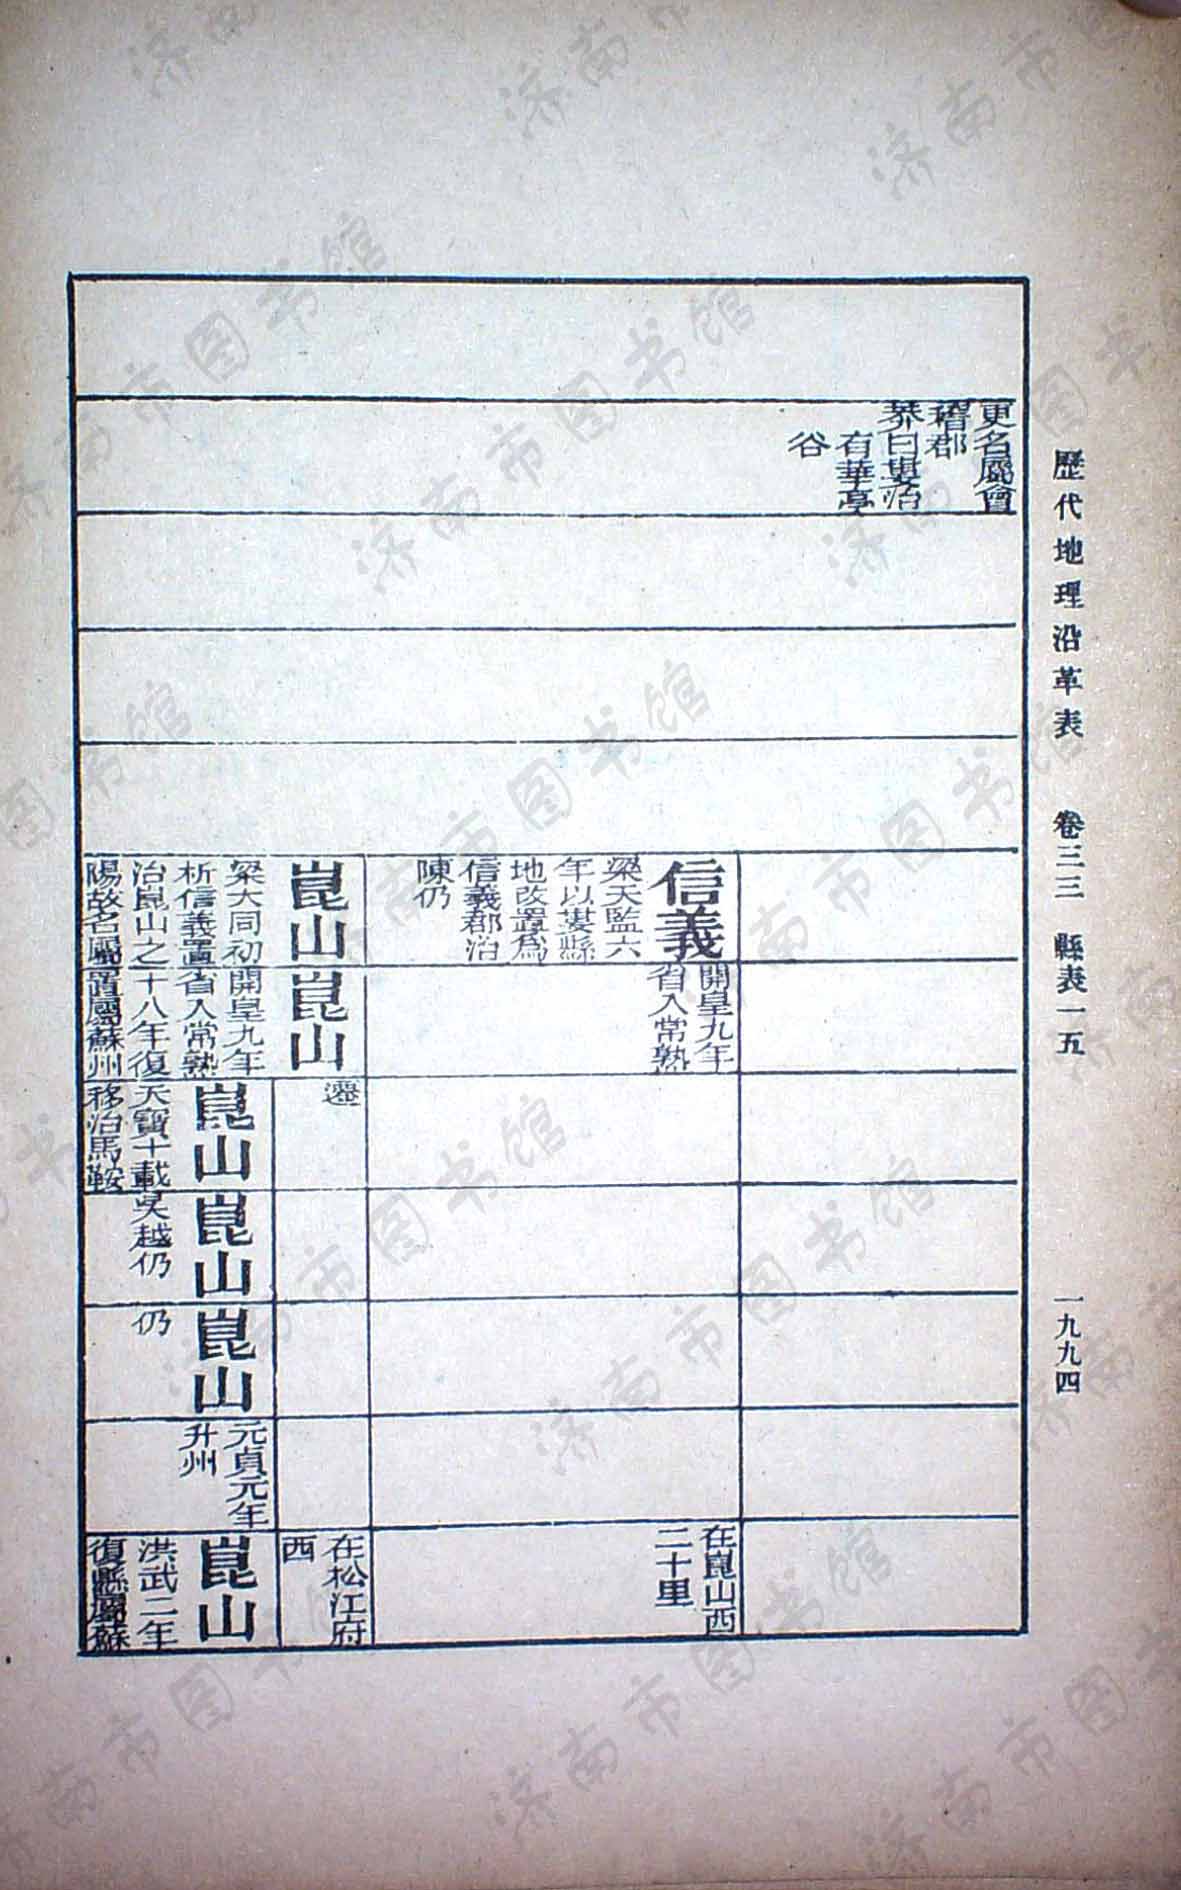 歷代地理沿革表　卷三三　縣表一五　一九九四
更名屬會
稽郡
莽曰婁治
有華亭
谷
信義
梁天監六
年以婁縣
地改置爲
信義郡治
陳仍
崑山
梁大同初
析信義置
治崑山之
陽故名屬
開皇九年
省入常熟
崑山
開皇九年
省入常熟
十八年復
置屬蘇州
遷
崑山
天寶十載
移治馬鞍
崑山
吳越仍
崑山
仍
元貞元年
升州
在崑山西
二十里
在松江府
西
崑山
洪武二年
復縣屬蘇
济南市图书馆